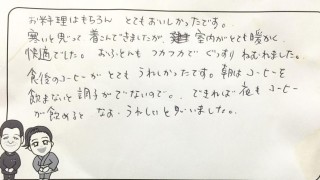 お料理はもちろん とてもおいしかったです。
寒いと思って 着こんできましたが、室内がとても暖かく、
快適でした。おふとんもフカフカで ぐっすりねむれました。
食後のコーヒーがとても うれしかったです。朝はコーヒーを
飲まないと調子がでないので。できれば 夜もコーヒー
が飲めると なお・うれしいと思いました。